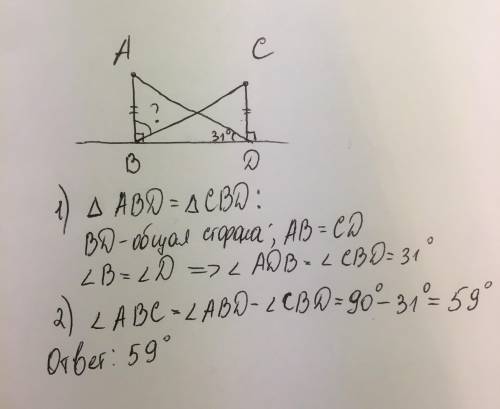 A C
?
31°
B D
1) Δ ABD = Δ CBD :
BD - общая сторона; AB = CD
∠B = ∠D => ∠ ADB = ∠ CBD = 31°
2) ∠ ABC = ∠ABD - ∠CBD = 90° - 31° = 59°
Ответ: 59°